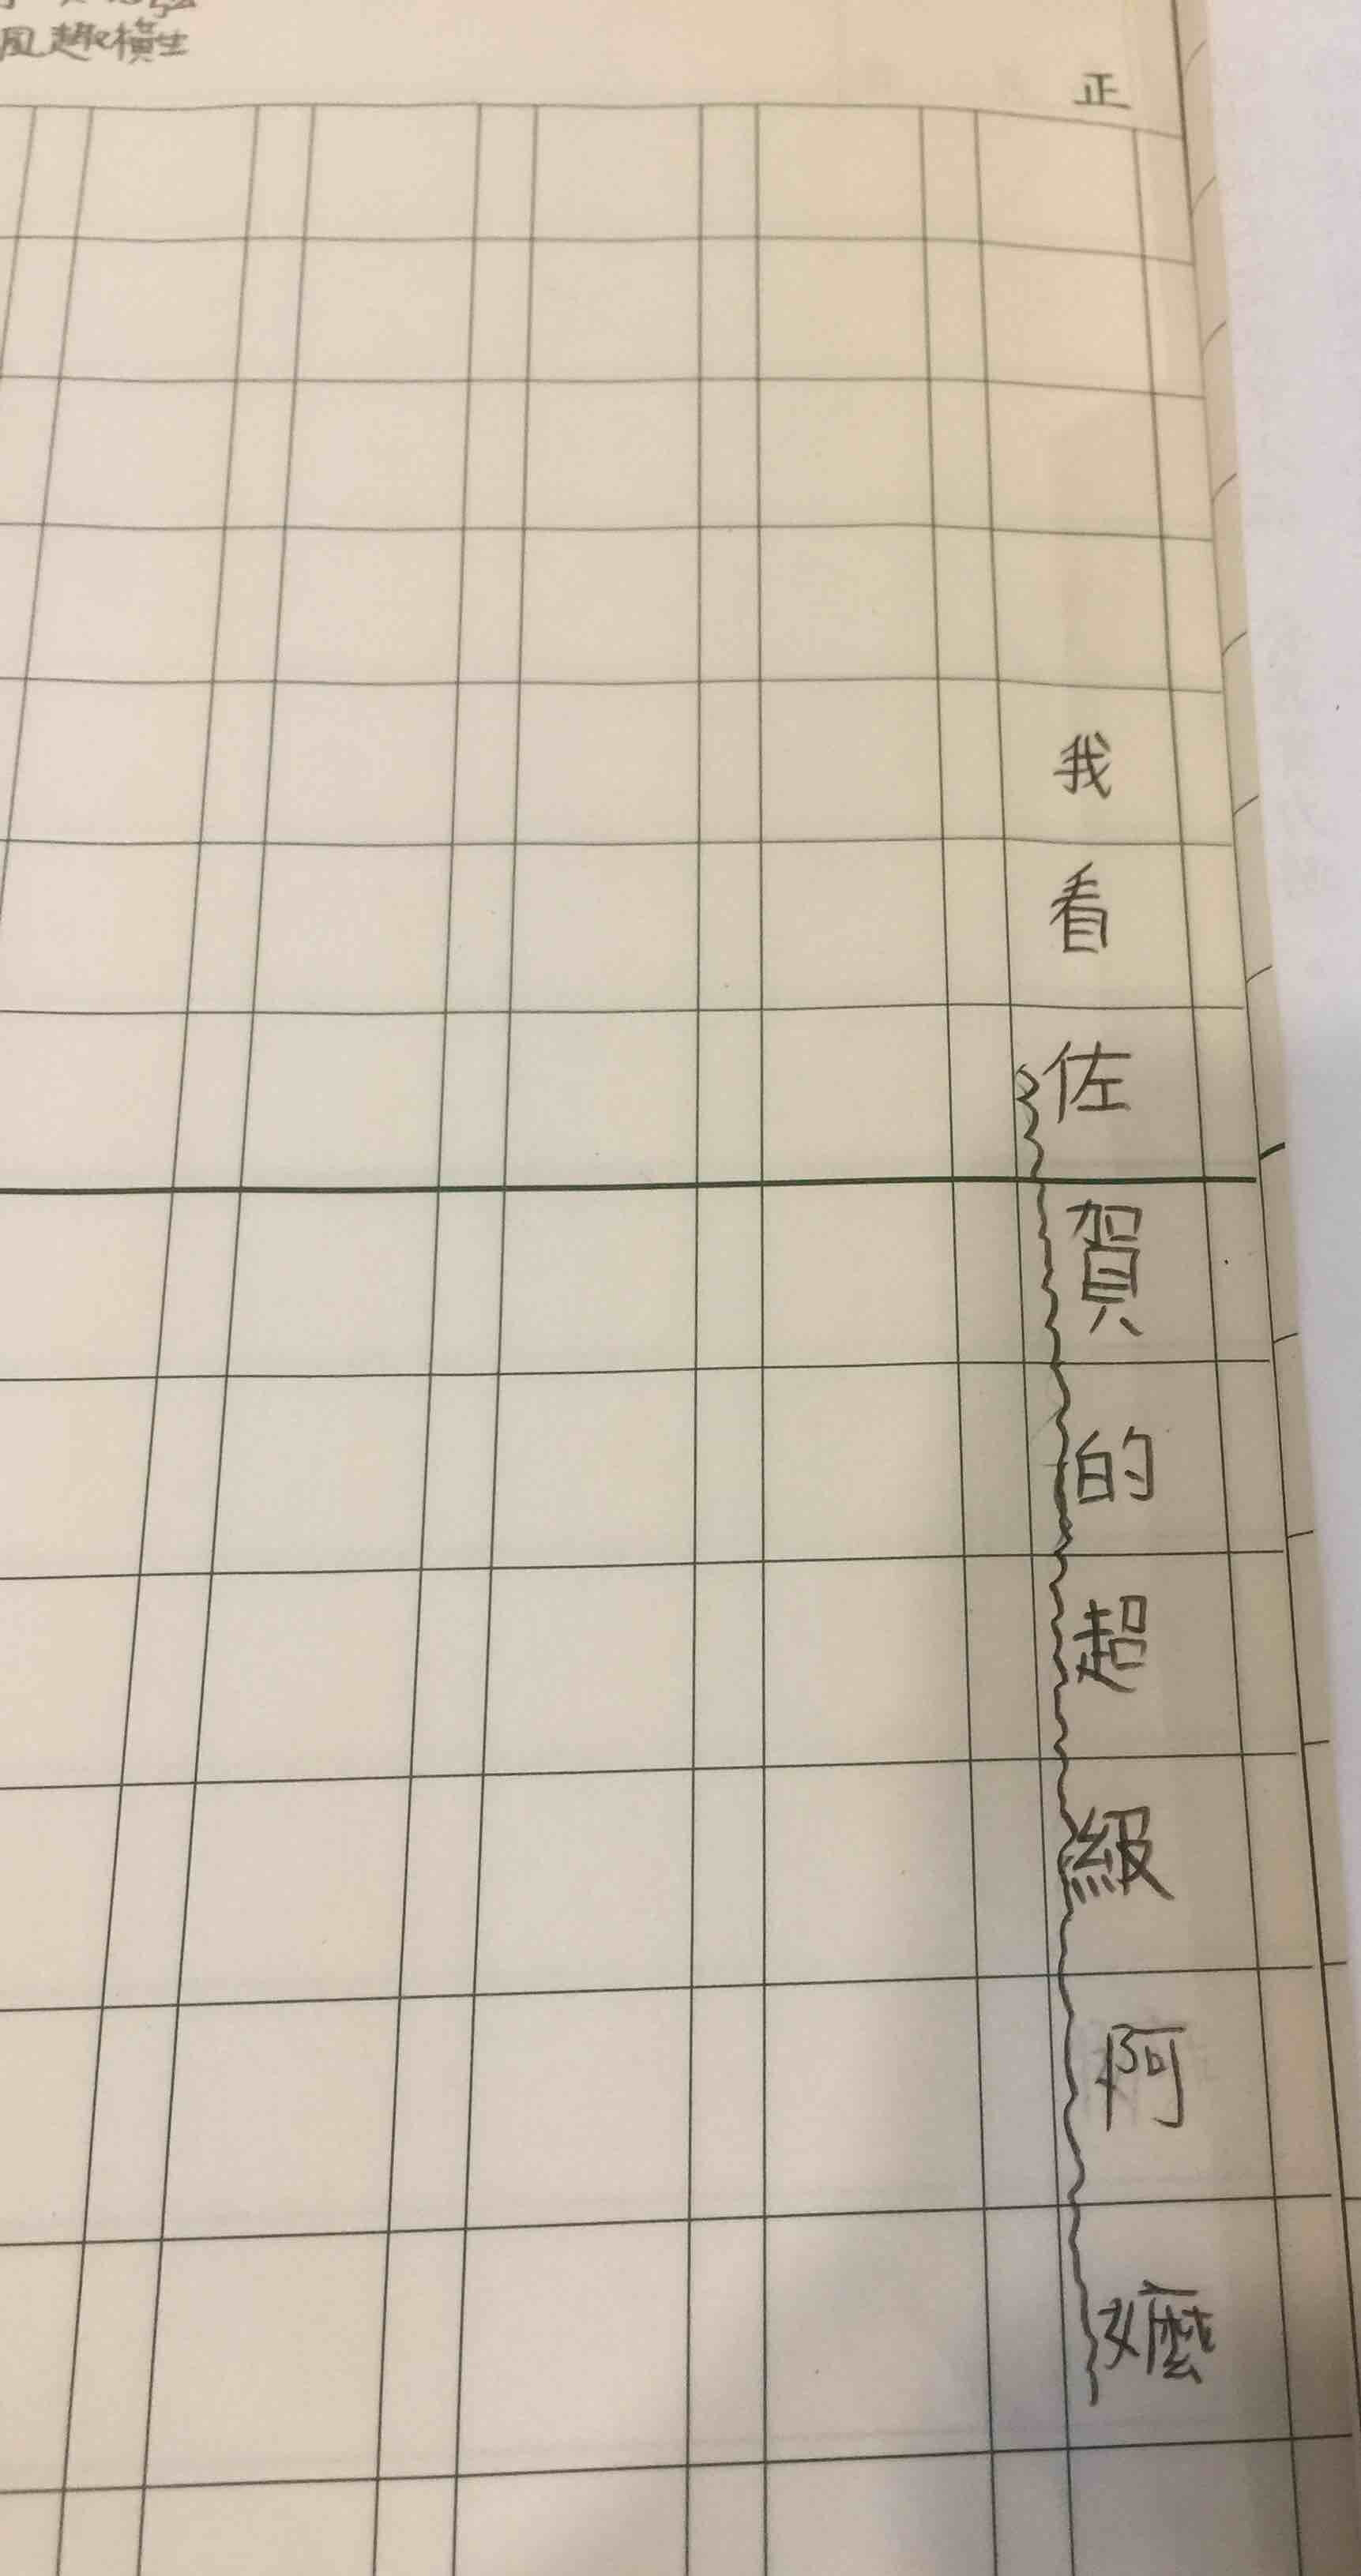 風趣橫生
正
我看佐賀的超級阿嬤